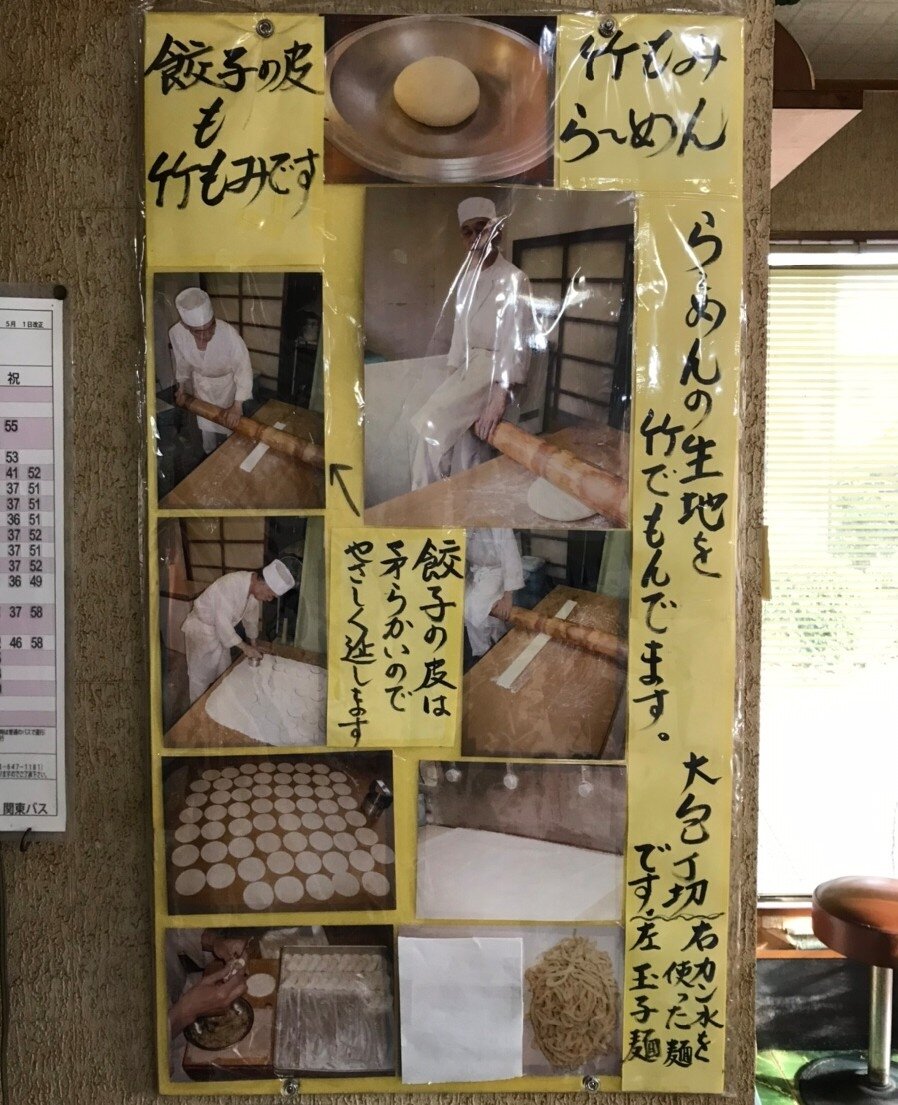 竹もみ
らーめん
餃子の皮
も
竹もみです
らーめんの生地を
竹でもんでます。
餃子の皮は
柔らかいので
やさしく延します
大包丁切
です。
右カン水を
使った麺
左 玉子麺
5月 1日改正
祝
55
53
41 52
37 51
37 51
36 51
37 52
37 51
37 52
36 49
37 58
46 58
関東バス